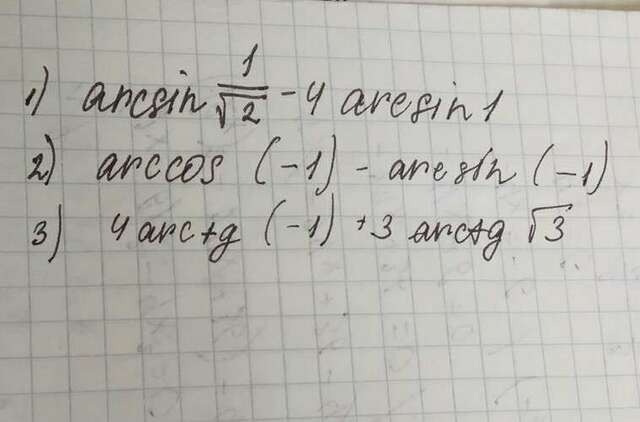 1) arcsin 1/√2 - 4 arcsin 1
2) arccos (-1) - arcsin (-1)
3) 4 arctg (-1) + 3 arctg √3